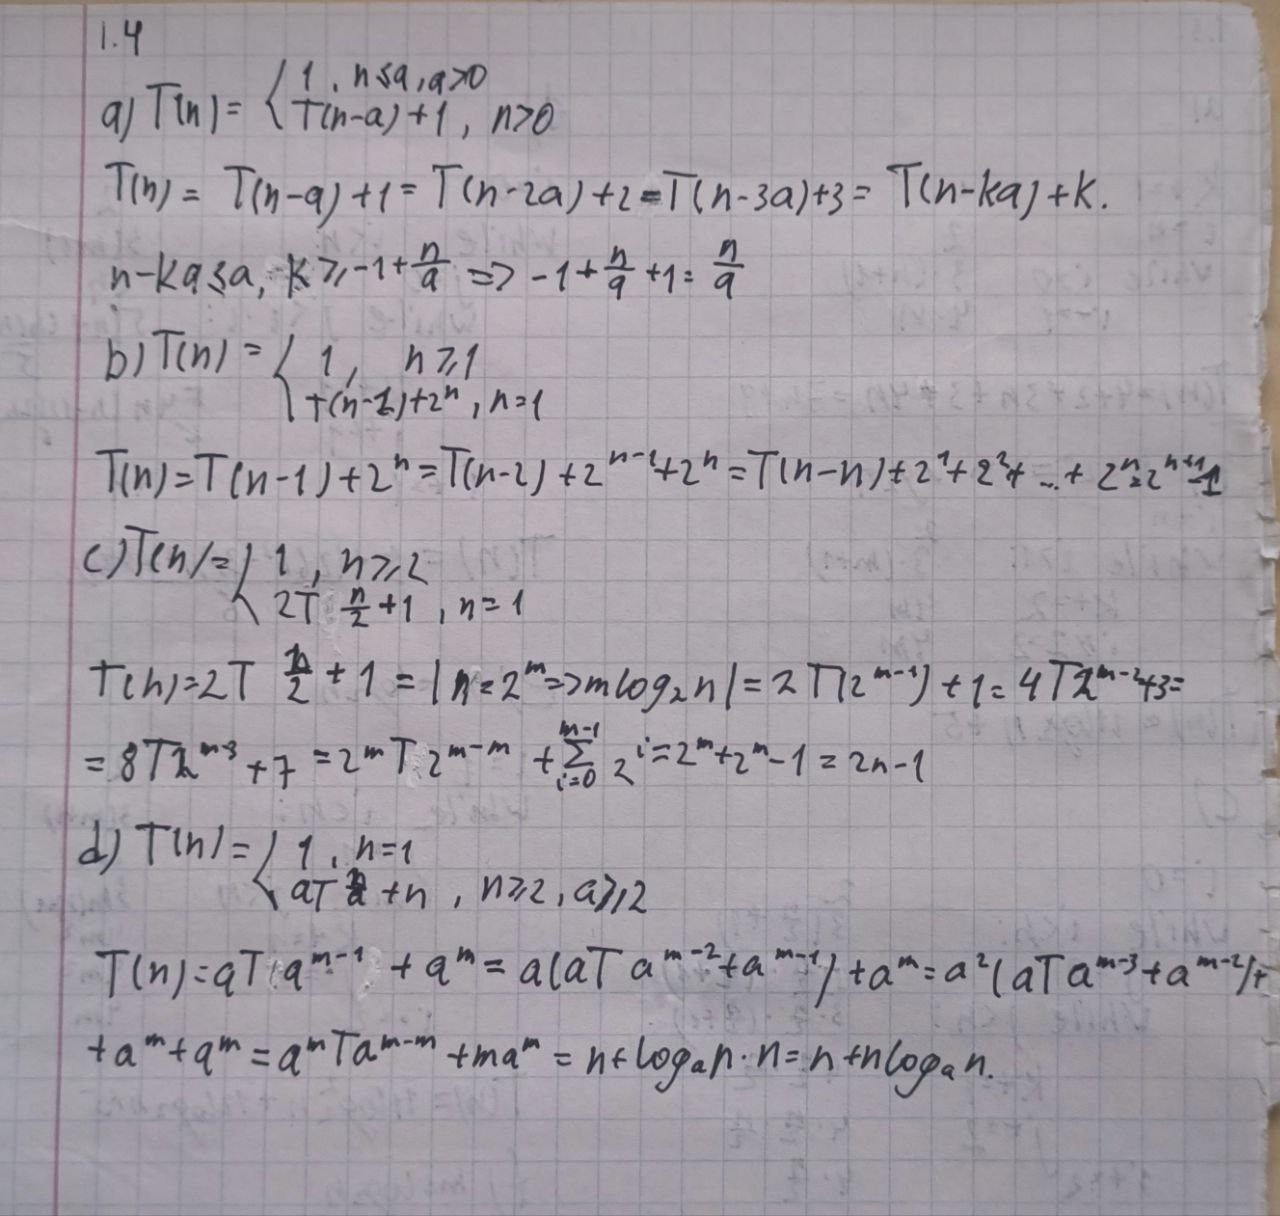 1.4
a) T(n) = { 1, n≤a, a>0
T(n-a)+1, n>0
T(n) = T(n-a)+1 = T(n-2a)+2 = T(n-3a)+3 = T(n-ka)+k.
n-ka≤a, k≥-1+n/a => -1+n/a+1= n/a
b) T(n) = { 1, n≥1
T(n-1)+2^n, n=1
T(n)=T(n-1)+2^n=T(n-2)+2^{n-1}+2^n=T(n-n)+2^1+2^2+...+2^n=2^{n+1}-1
c) T(n)= { 1, n≥2
2T n/2 +1, n=1
T(n)=2T n/2 + 1 = |n=2^m=>mlog₂n|=2T(2^{m-1})+1=4T2^{m-2}+3=
= 8T2^{m-3}+7 =2^m T 2^{m-m} + ∑_{i=0}^{m-1} 2^i=2^m+2^m-1=2n-1
d) T(n)= { 1, n=1
aT n/a +n, n≥2, a≥2
T(n)=aT a^{m-1} + a^m = a(aT a^{m-2}+a^{m-1})+a^m=a^2(aTa^{m-3}+a^{m-2})+
+a^m+a^m = a^m Ta^{m-m} +ma^m = n+logₐn·n= n+nlogₐn.